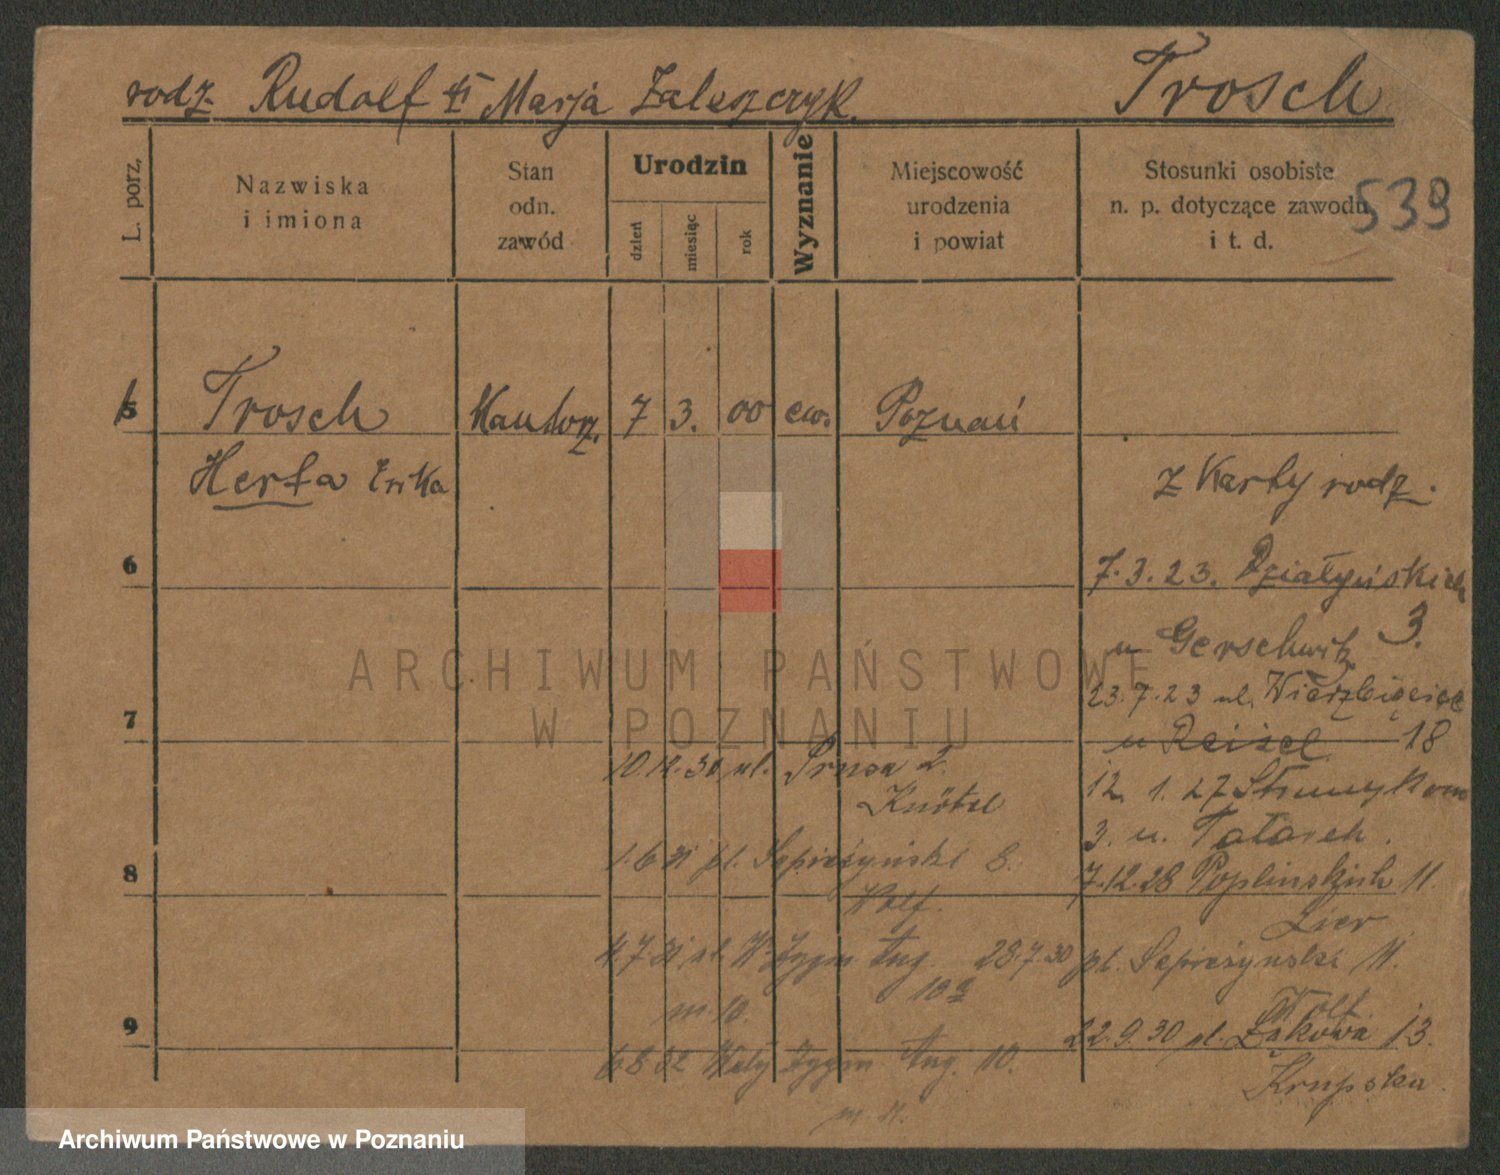 rodz. Rudolf i Marja Zaleszczyk. Trosch
L. porz.
Nazwiska
i imiona
Stan
odn.
zawód
Urodzin
dzień
miesiąc
rok
Wyznanie
Miejscowość
urodzenia
i powiat
Stosunki osobiste
n. p. dotyczące zawodu
i t. d.
539
5 Trosch Kantorz. 7 3. 00 ew. Poznań
Herta Erika
z Karty rodz.
6
7.3.23. Działyńskich
u Gerschwitz 3.
23.7.23 ul. Wierzbięcice
7
u Reisel 18
10.12.30 ul. Prusa 2.
Knötel
12. 1. 27 Strumykowa
3. u. Tatarek.
1.6.31 pl. Sapieżyński 8.
8
7.12.28 Poplińskich 11.
Wolf.
Zier
4.7.31 ul. W. Zygm Aug.
18a
m. 10.
28.7.30 pl. Sapieżyński 11.
Wolf
9
22.9.30 pl. 13.
Krupska.
6.8.32 Wały Zygm Aug. 10.
m. 11.
ARCHIWUM PAŃSTWOWE
W POZNANIU
Archiwum Państwowe w Poznaniu